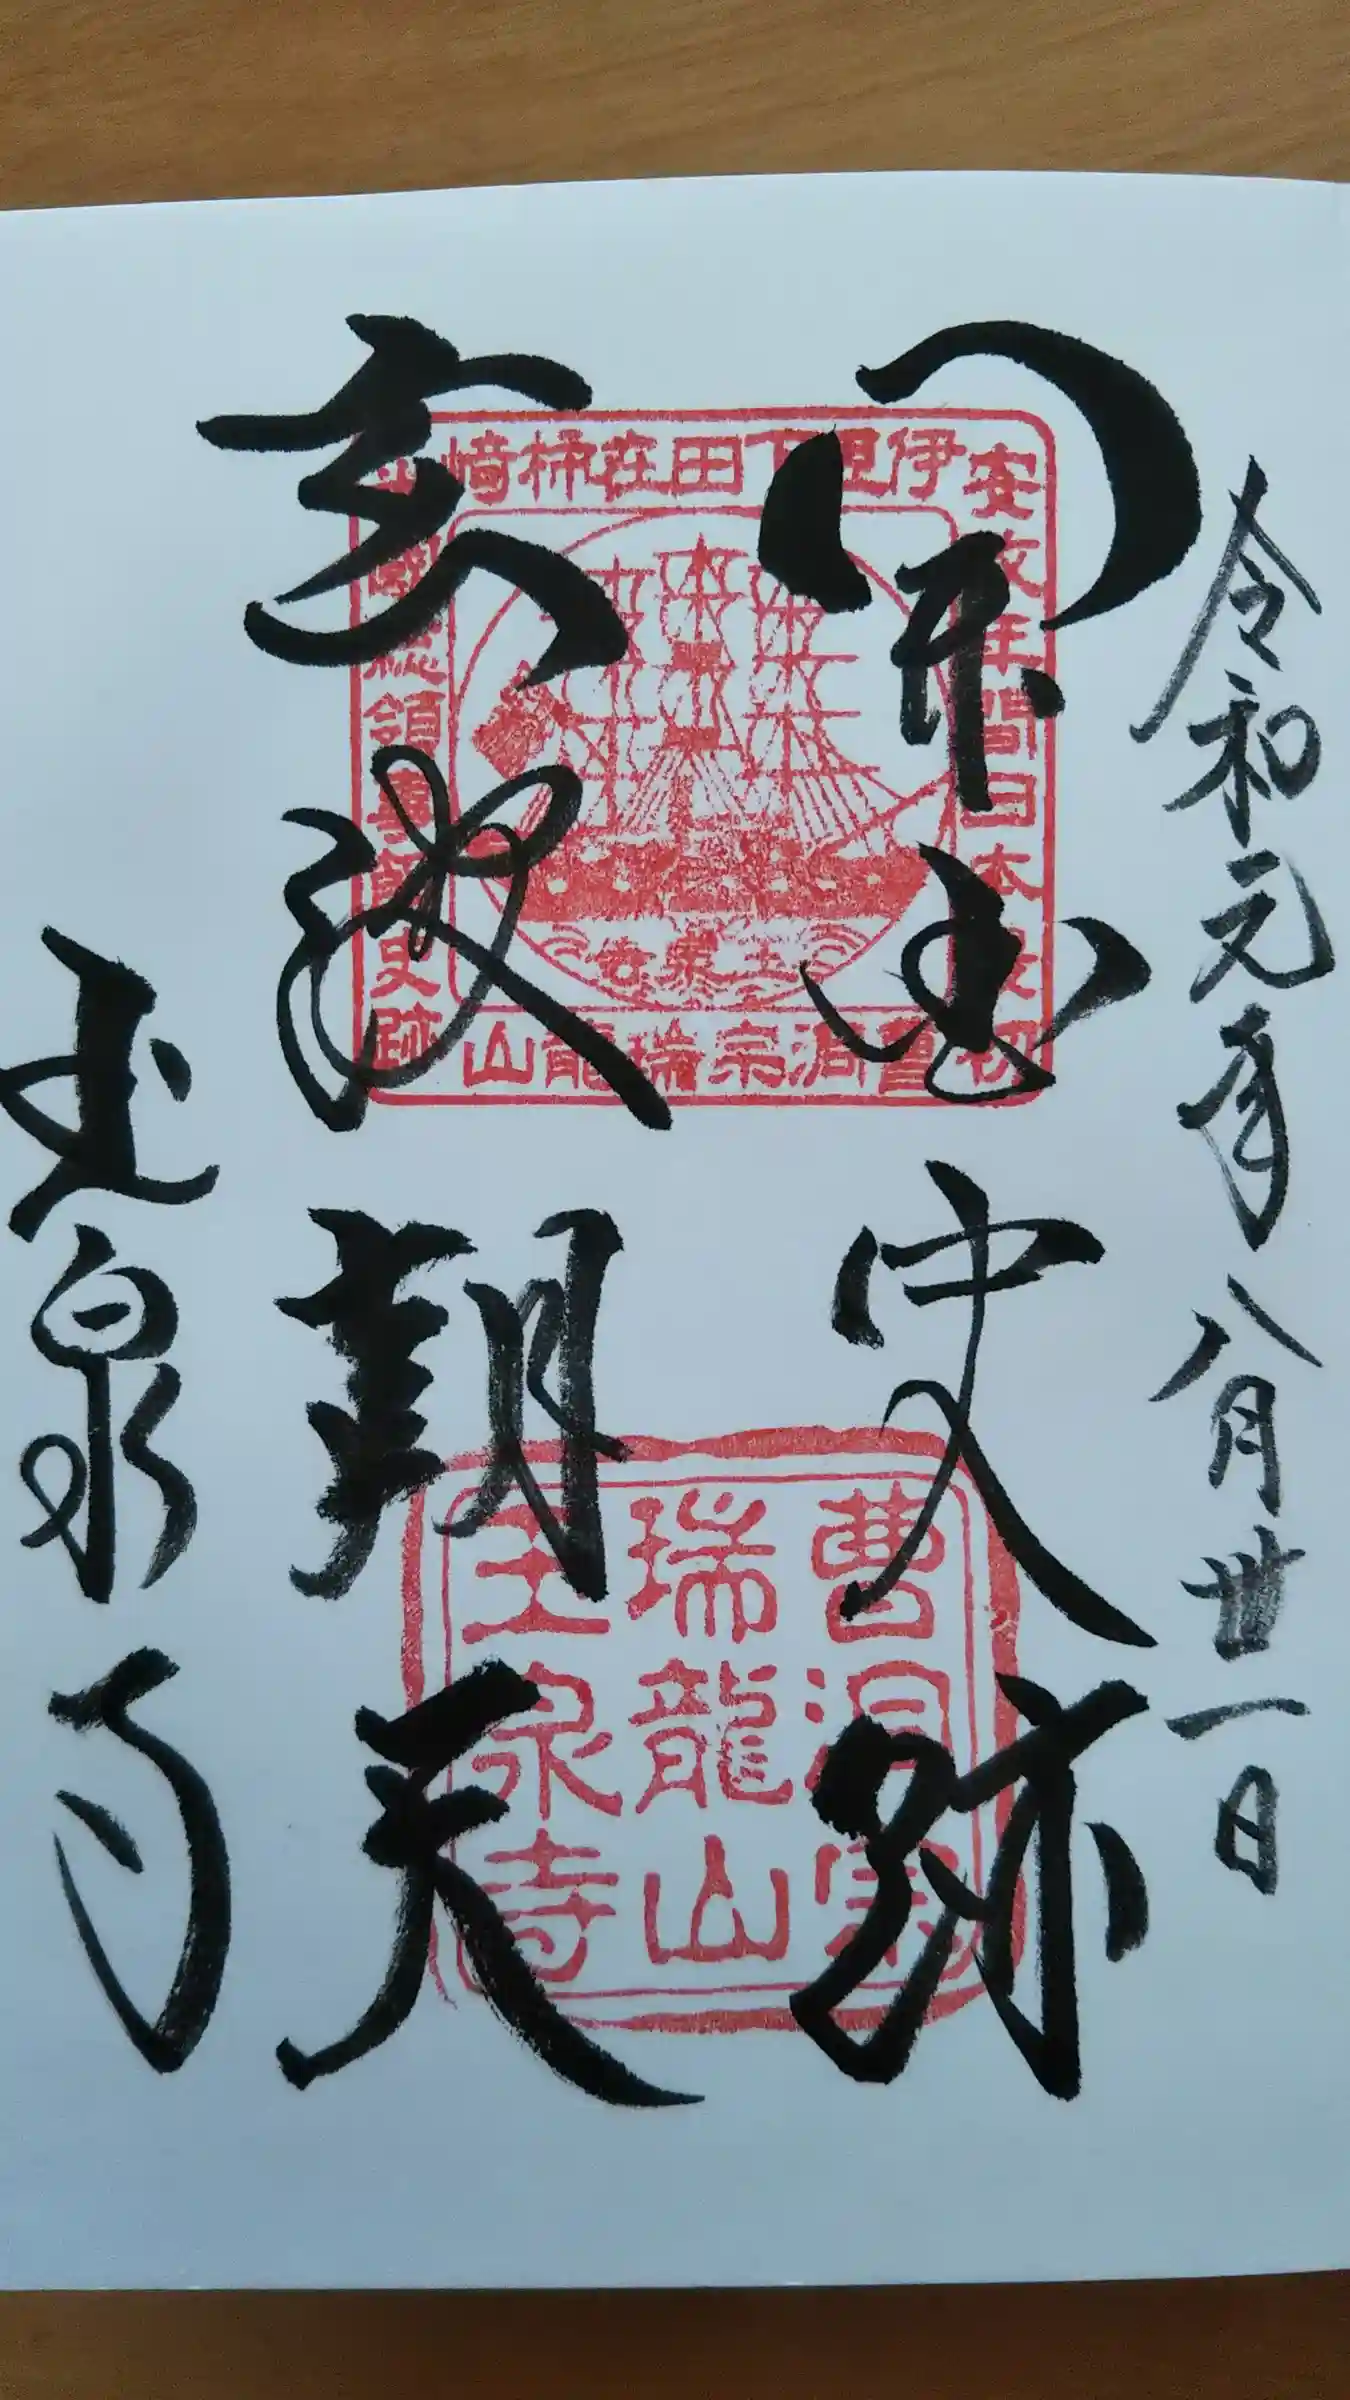 令和元年八月卅一日
開国史跡
朝天
玉泉寺
安政年間日本最初
伊豆下田在柿崎
米國總領事館史跡
曹洞宗瑞龍山
玉泉寺
曹洞宗
瑞龍山
玉泉寺